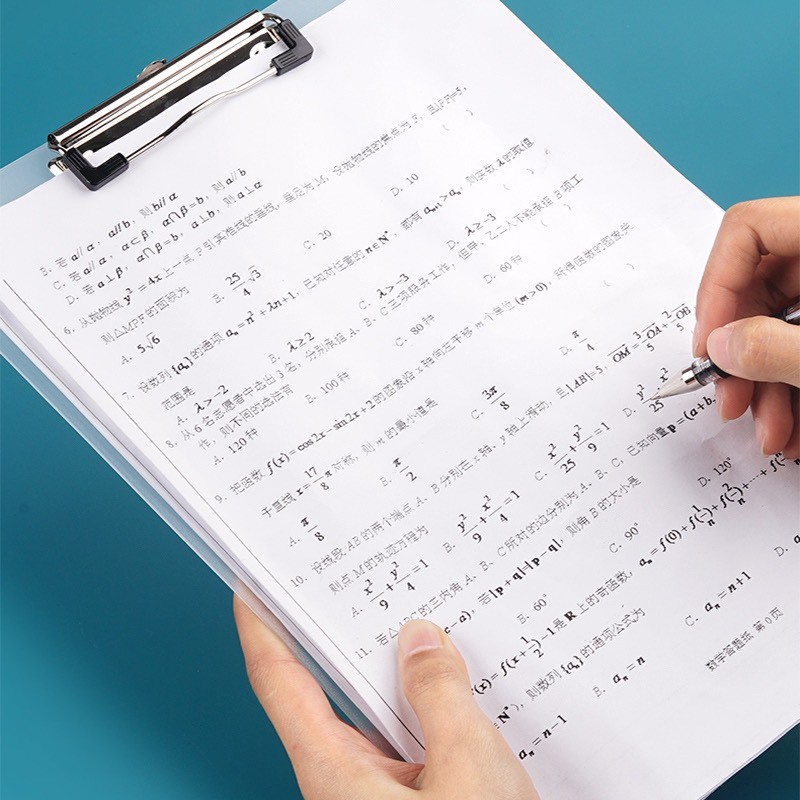 B. 若 a∥α, a∥b, 则 b∥α
C. 若 a∥α, α⊂β, α∩β=b, 则 a∥b
D. 若 a⊥β, α∩β=b, a⊥b, 则 a⊥α
6. 从抛物线 y²=4x 上一点 P 引其准线的垂线,垂足为 M, 设抛物线的焦点为 F, 且|PF|=5,
则△MPF 的面积为 ( )
A. 5√6 B. 25/4 √3 C. 20 D. 10
7. 设数列 {aₙ} 的通项 aₙ=n²+λn+1, 已知对任意的 n∈N*, 都有 aₙ₊₁>aₙ, 则实数 λ 的取值
范围是 ( )
A. λ>-2 B. λ≥2 C. λ>-3 D. λ≥-3
8. 从 6 名志愿者中选出 3 名, 分别承担 A、B、C 三项服务工作, 但甲、乙二人不能承担 B 项工
作, 则不同的选法有 ( )
A. 120 种 B. 100 种 C. 80 种 D. 60 种
9. 把函数 f(x)=cos2x-sin2x+2 的图象沿 x 轴向左平移 m 个单位 (m>0), 所得函数的图象关
于直线 x=17/8 π 对称, 则 m 的最小值是 ( )
A. π/8 B. π/2 C. 3π/8 D. π/4
10. 设线段 AB 的两个端点 A、B 分别在 x 轴、y 轴上滑动, 且|AB|=5, OM=3/5 OA+2/5 OB
则点 M 的轨迹方程为
A. x²/9+y²/4=1 B. y²/9+x²/4=1 C. x²/25+y²/9=1 D. y²/25 x²
11. 若△ABC 的三内角 A、B、C 所对的边分别为 A、B、C, 已知向量 p=(a+b,
c-a), 若|p+q|=|p-q|, 则角 B 的大小是
B. 60° C. 90° D. 120°
(x)=f(x+1/2)-1 是 R 上的奇函数, aₙ=f(0)+f(1/n)+f(2/n)+⋯+f(
N*), 则数列 {aₙ} 的通项公式为
aₙ=n-1 B. aₙ=n C. aₙ=n+1 D. a
数学答题纸 第 0 页